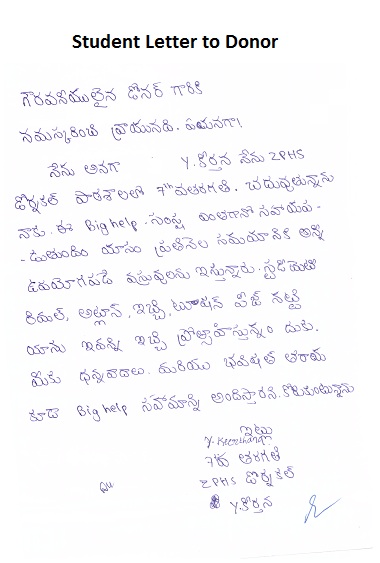 Student Letter to Donor
గౌరవనీయులైన డోనర్ గారికి
నమస్కరించి వ్రాయునది. ఏమనగా!
నేను అనగా Y. కీర్తన నేను ZPHS
డోర్నకల్ పాఠశాలలో 7th వతరగతి. చదువుతున్నాను
నాకు. ఈ Big help. సంస్థ ఎంతగానో సహాయప-
- డుతుంది ప్రతినెల సమయానికి అన్ని
ఉపయోగపడే వస్తువులను ఇస్తున్నారు. స్టడిమెటి
రియల్, ఇచ్చి, ట్యూషన్ ఫీజ్
ఇవన్ని ఇచ్చి ప్రోత్సాహిస్తున్నం దుకు.
మీకు ధన్యవాదాలు. మరియు భవిషత్
కూడా Big help సహాయాన్ని అందిస్తారని. కోరుకుంటున్నాను
ఇట్లు
Y. Keerthana
7వ తరగతి
ZPHS డోర్నకల్
Y. కీర్తన